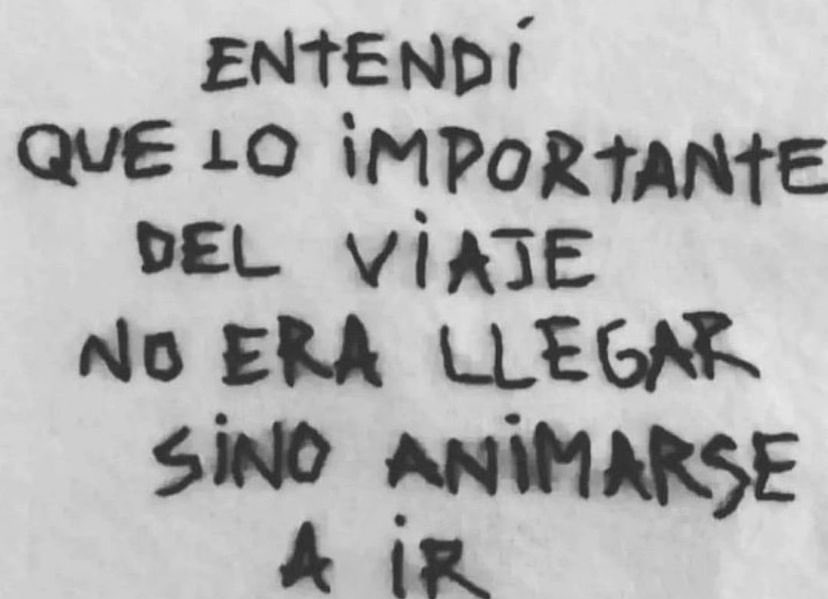 ENTENDÍ
QUE LO iMPORTANTE
DEL ViAJE
NO ERA LLEGAR
SiNO ANiMARSE
A iR